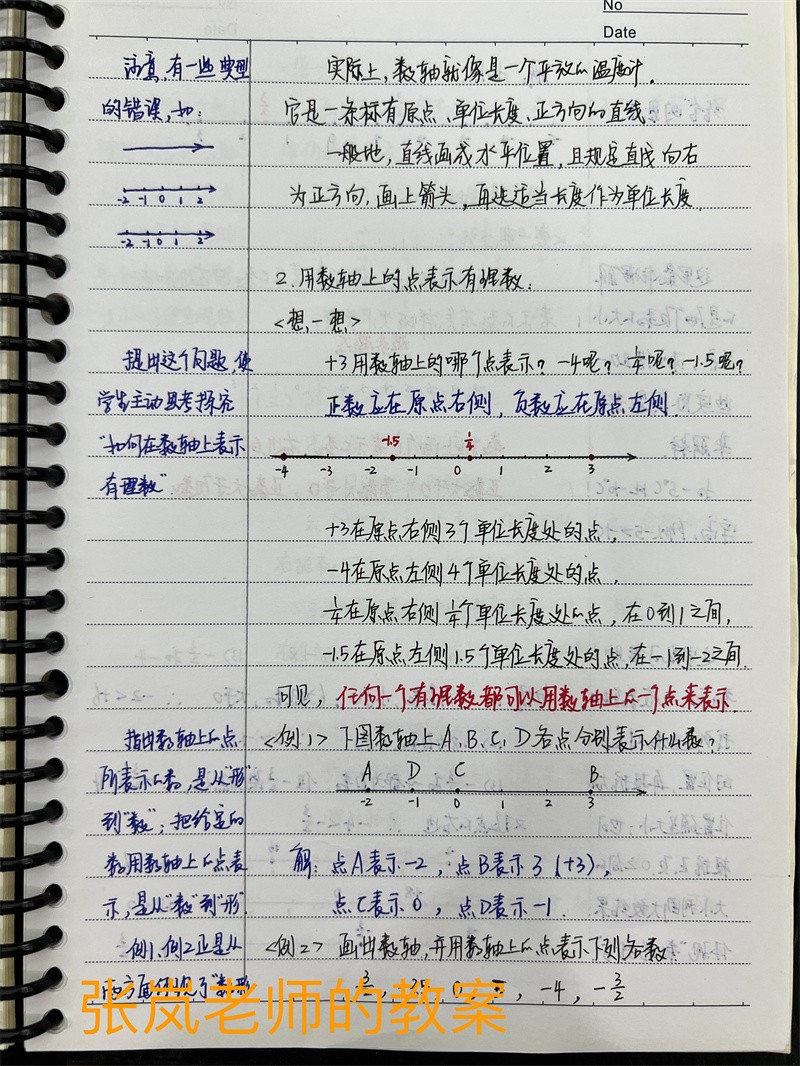 No
Date
注意,有一些典型
的错误,如:
-2 -1 0 1 2
-2 -1 0 1 2
提出这个问题,使
学生主动思考探究
"如何在数轴上表示
有理数".
指出数轴上的点
所表示的数,是从"形"
到"数";把给定的
数用数轴上的点表
示,是从"数"到"形".
例1,例2正是从
两方面体现了"数形
实际上,数轴就像是一个平放的温度计.
它是一条标有原点、单位长度、正方向的直线.
一般地,直线画成水平位置,且规定直线向右
为正方向,画上箭头,再选适当长度作为单位长度.
2.用数轴上的点表示有理数:
<想一想>
+3用数轴上的哪个点表示?-4呢?1/4呢?-1.5呢?
正数应在原点右侧,负数应在原点左侧.
-1.5 1/4
-4 -3 -2 -1 0 1 2 3
+3在原点右侧3个单位长度处的点,
-4在原点左侧4个单位长度处的点,
1/4在原点右侧1/4个单位长度处的点,在0到1之间,
-1.5在原点左侧1.5个单位长度处的点,在-1到-2之间.
可见,任何一个有理数都可以用数轴上的一个点来表示.
<例1>下图数轴上A、B、C、D各点分别表示什么数?
A D C B
-2 -1 0 1 2 3
解:点A表示-2,点B表示3(+3),
点C表示0,点D表示-1.
<例2>画出数轴,并用数轴上的点表示下列各数:
-4,-3/2
张岚老师的教案